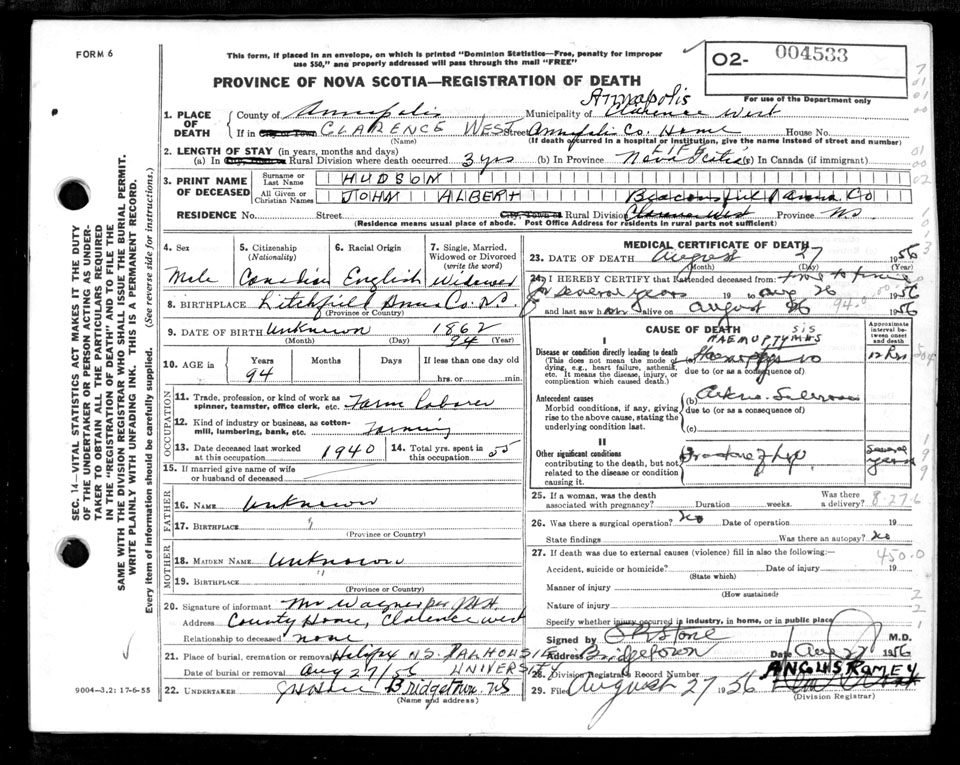 FORM 6
This form, if placed in an envelope, on which is printed "Dominion Statistics—Free, penalty for improper
use $50," and properly addressed will pass through the mail "FREE"
PROVINCE OF NOVA SCOTIA—REGISTRATION OF DEATH
02- 004533
For use of the Department only
1. PLACE OF DEATH
County of Annapolis Municipality of Annapolis Clarence West
If in City or Town CLARENCE WEST Street Annapolis Co. Home House No.
(Name) (If death occurred in a hospital or institution, give the name instead of street and number)
2. LENGTH OF STAY (in years, months and days) LIFE
(a) In City, Town or Rural Division where death occurred 3 yrs (b) In Province Nova Scotia (c) In Canada (if immigrant)
3. PRINT NAME OF DECEASED
Surname or Last Name HUDSON
All Given or Christian Names JOHN ALBERT Anna. Co
RESIDENCE No. Street City, Town or Rural Division Clarence West Province NS
(Residence means usual place of abode. Post Office Address for residents in rural parts not sufficient)
4. Sex
Male
5. Citizenship
(Nationality)
Canadian
6. Racial Origin
English
7. Single, Married,
Widowed or Divorced
(write the word)
Widower
8. BIRTHPLACE Litchfield Anna Co. NS
(Province or Country)
9. DATE OF BIRTH Unknown 1862
94
(Month) (Day) (Year)
10. AGE IN
Years Months Days If less than one day old
94 hrs. or min.
OCCUPATION
11. Trade, profession, or kind of work as
spinner, teamster, office clerk, etc. Farm Laborer
12. Kind of industry or business, as cotton-
mill, lumbering, bank, etc. Farming
13. Date deceased last worked
at this occupation 1940
14. Total yrs. spent in
this occupation 55
15. If married give name of wife
or husband of deceased
FATHER
16. NAME Unknown
17. BIRTHPLACE "
(Province or Country)
MOTHER
18. MAIDEN NAME Unknown
19. BIRTHPLACE "
(Province or Country)
20. Signature of informant Mr Wagner per
Address County Home, Clarence West
Relationship to deceased none
21. Place of burial, cremation or removal Halifax NS. DALHOUSIE
UNIVERSITY
Date of burial or removal Aug 27/56
22. UNDERTAKER Bridgetown. NS
(Name and address)
MEDICAL CERTIFICATE OF DEATH
23. DATE OF DEATH August 27 1956
(Month) (Day) (Year)
24. I HEREBY CERTIFY that I attended deceased from time to time
for several years 19 to Aug 26 1956
and last saw him alive on August 26 1956
940.0
CAUSE OF DEATH
Approximate interval between onset and death
I
HAEMOPTYSIS
Disease or condition directly leading to death
(This does not mean the mode of
dying, e.g., heart failure, asthenia,
etc. It means the disease, injury, or
complication which caused death.)
(a)
due to (or as a consequence of)
12 hrs
Antecedent causes
Morbid conditions, if any, giving
rise to the above cause, stating the
underlying condition last.
(b)
due to (or as a consequence of)
(c)
II
Other significant conditions
contributing to the death, but not
related to the disease or condition
causing it.
Several years
25. If a woman, was the death
associated with pregnancy? Duration weeks. Was there
a delivery?
8-27-6
26. Was there a surgical operation? No Date of operation 19
State findings Was there an autopsy? No
27. If death was due to external causes (violence) fill in also the following:—
450.0
Accident, suicide or homicide? Date of injury 19
(State which)
Manner of injury
(How sustained)
Nature of injury
Specify whether injury occurred in industry, in home, or in public place
Signed by Stone M.D.
Address Bridgetown Date Aug 27 1956
28. Division Registrar's Record Number
ANGUS RAMEY
29. Filed August 27 1956
(Division Registrar)
SEC. 14—VITAL STATISTICS ACT MAKES IT THE DUTY
OF THE UNDERTAKER OR PERSON ACTING AS UNDER-
TAKER TO OBTAIN ALL THE PARTICULARS REQUIRED
IN THE "REGISTRATION OF DEATH" AND TO FILE THE
SAME WITH THE DIVISION REGISTRAR WHO SHALL ISSUE THE BURIAL PERMIT.
WRITE PLAINLY WITH UNFADING INK. THIS IS A PERMANENT RECORD.
Every item of information should be carefully supplied. (See reverse side for instructions.)
9004-3.2: 17-6-55